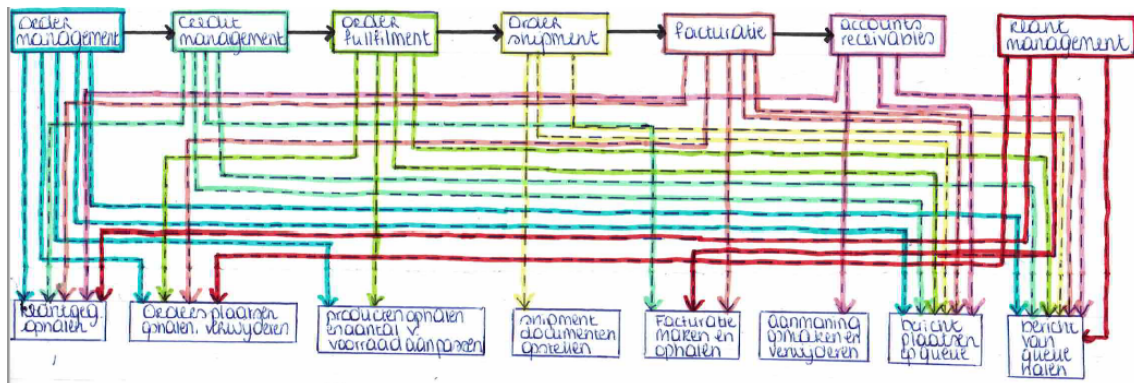 order
management
credit
management
order
fullfilment
order
shipment
facturatie
accounts
receivables
klant
management
klantgeg.
ophalen
orders plaatsen
ophalen, verwijderen
producten ophalen
en aantal v.
voorraad aanpassen
shipment
documenten
opstellen
Facturatie
maken en
ophalen
aanmaning
opmaken en
verwijderen
bericht
plaatsen
op queue
bericht
van
queue
halen